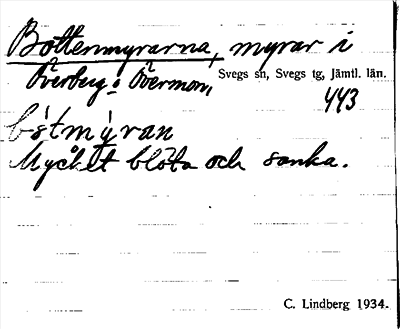 Bottenmyrarna, myrar i
Överberg o Övermon, Svegs sn, Svegs tg, Jämtl. län.
443
bótmýran
Mycket blöta och sanka.
C. Lindberg 1934.